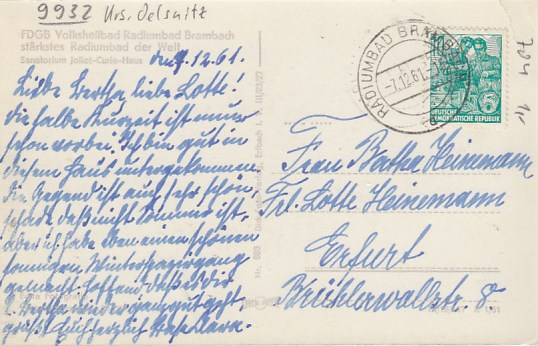 9932 Krs. Oelsnitz
FDGB Volksheilbad Radiumbad Brambach
stärkstes Radiumbad der Welt
Sanatorium Joliot-Curie-Haus
den 7.12.61.
Liebe Bertha, liebe Lotte!
die halbe Kurzeit ist nun
schon vorbei. Ich bin gut in
diesem Haus untergekommen.
die Gegend ist auch sehr schön,
schade daß nicht Sommer ist.
aber ich habe eben einen schönen
sonnigen Winterspaziergang
gemacht. Hoffend daß es dir
l. Bertha wieder ganz gut geht
grüßt Euch herzlich
RADIUMBAD BRAMBACH
-7.12.61
DEUTSCHE
DEMOKRATISCHE REPUBLIK
5
704
Frau Bertha Heinemann
Frl. Lotte Heinemann
Erfurt
Brühlerwallstr. 8
Nr. 883
III/23/27